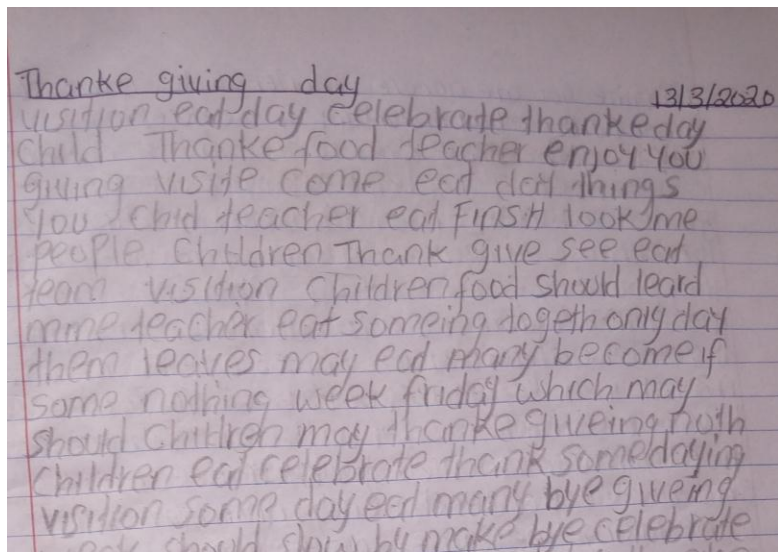 Thanke giving day 13/3/2020
visition eat day celebrate thanke day
child Thanke food teacher enjoy you
giving visite come eat day things
you chid teacher eat Finsh look me
people children Thank give see eat
team visition children food should leard
mme teacher eat someing togeth only day
them leaves may eat many become if
some nothing week friday which may
should children may thanke giveing noth
children eat celebrate thank some daying
visition some day eat many bye giveing
should slow by make bye celebrate